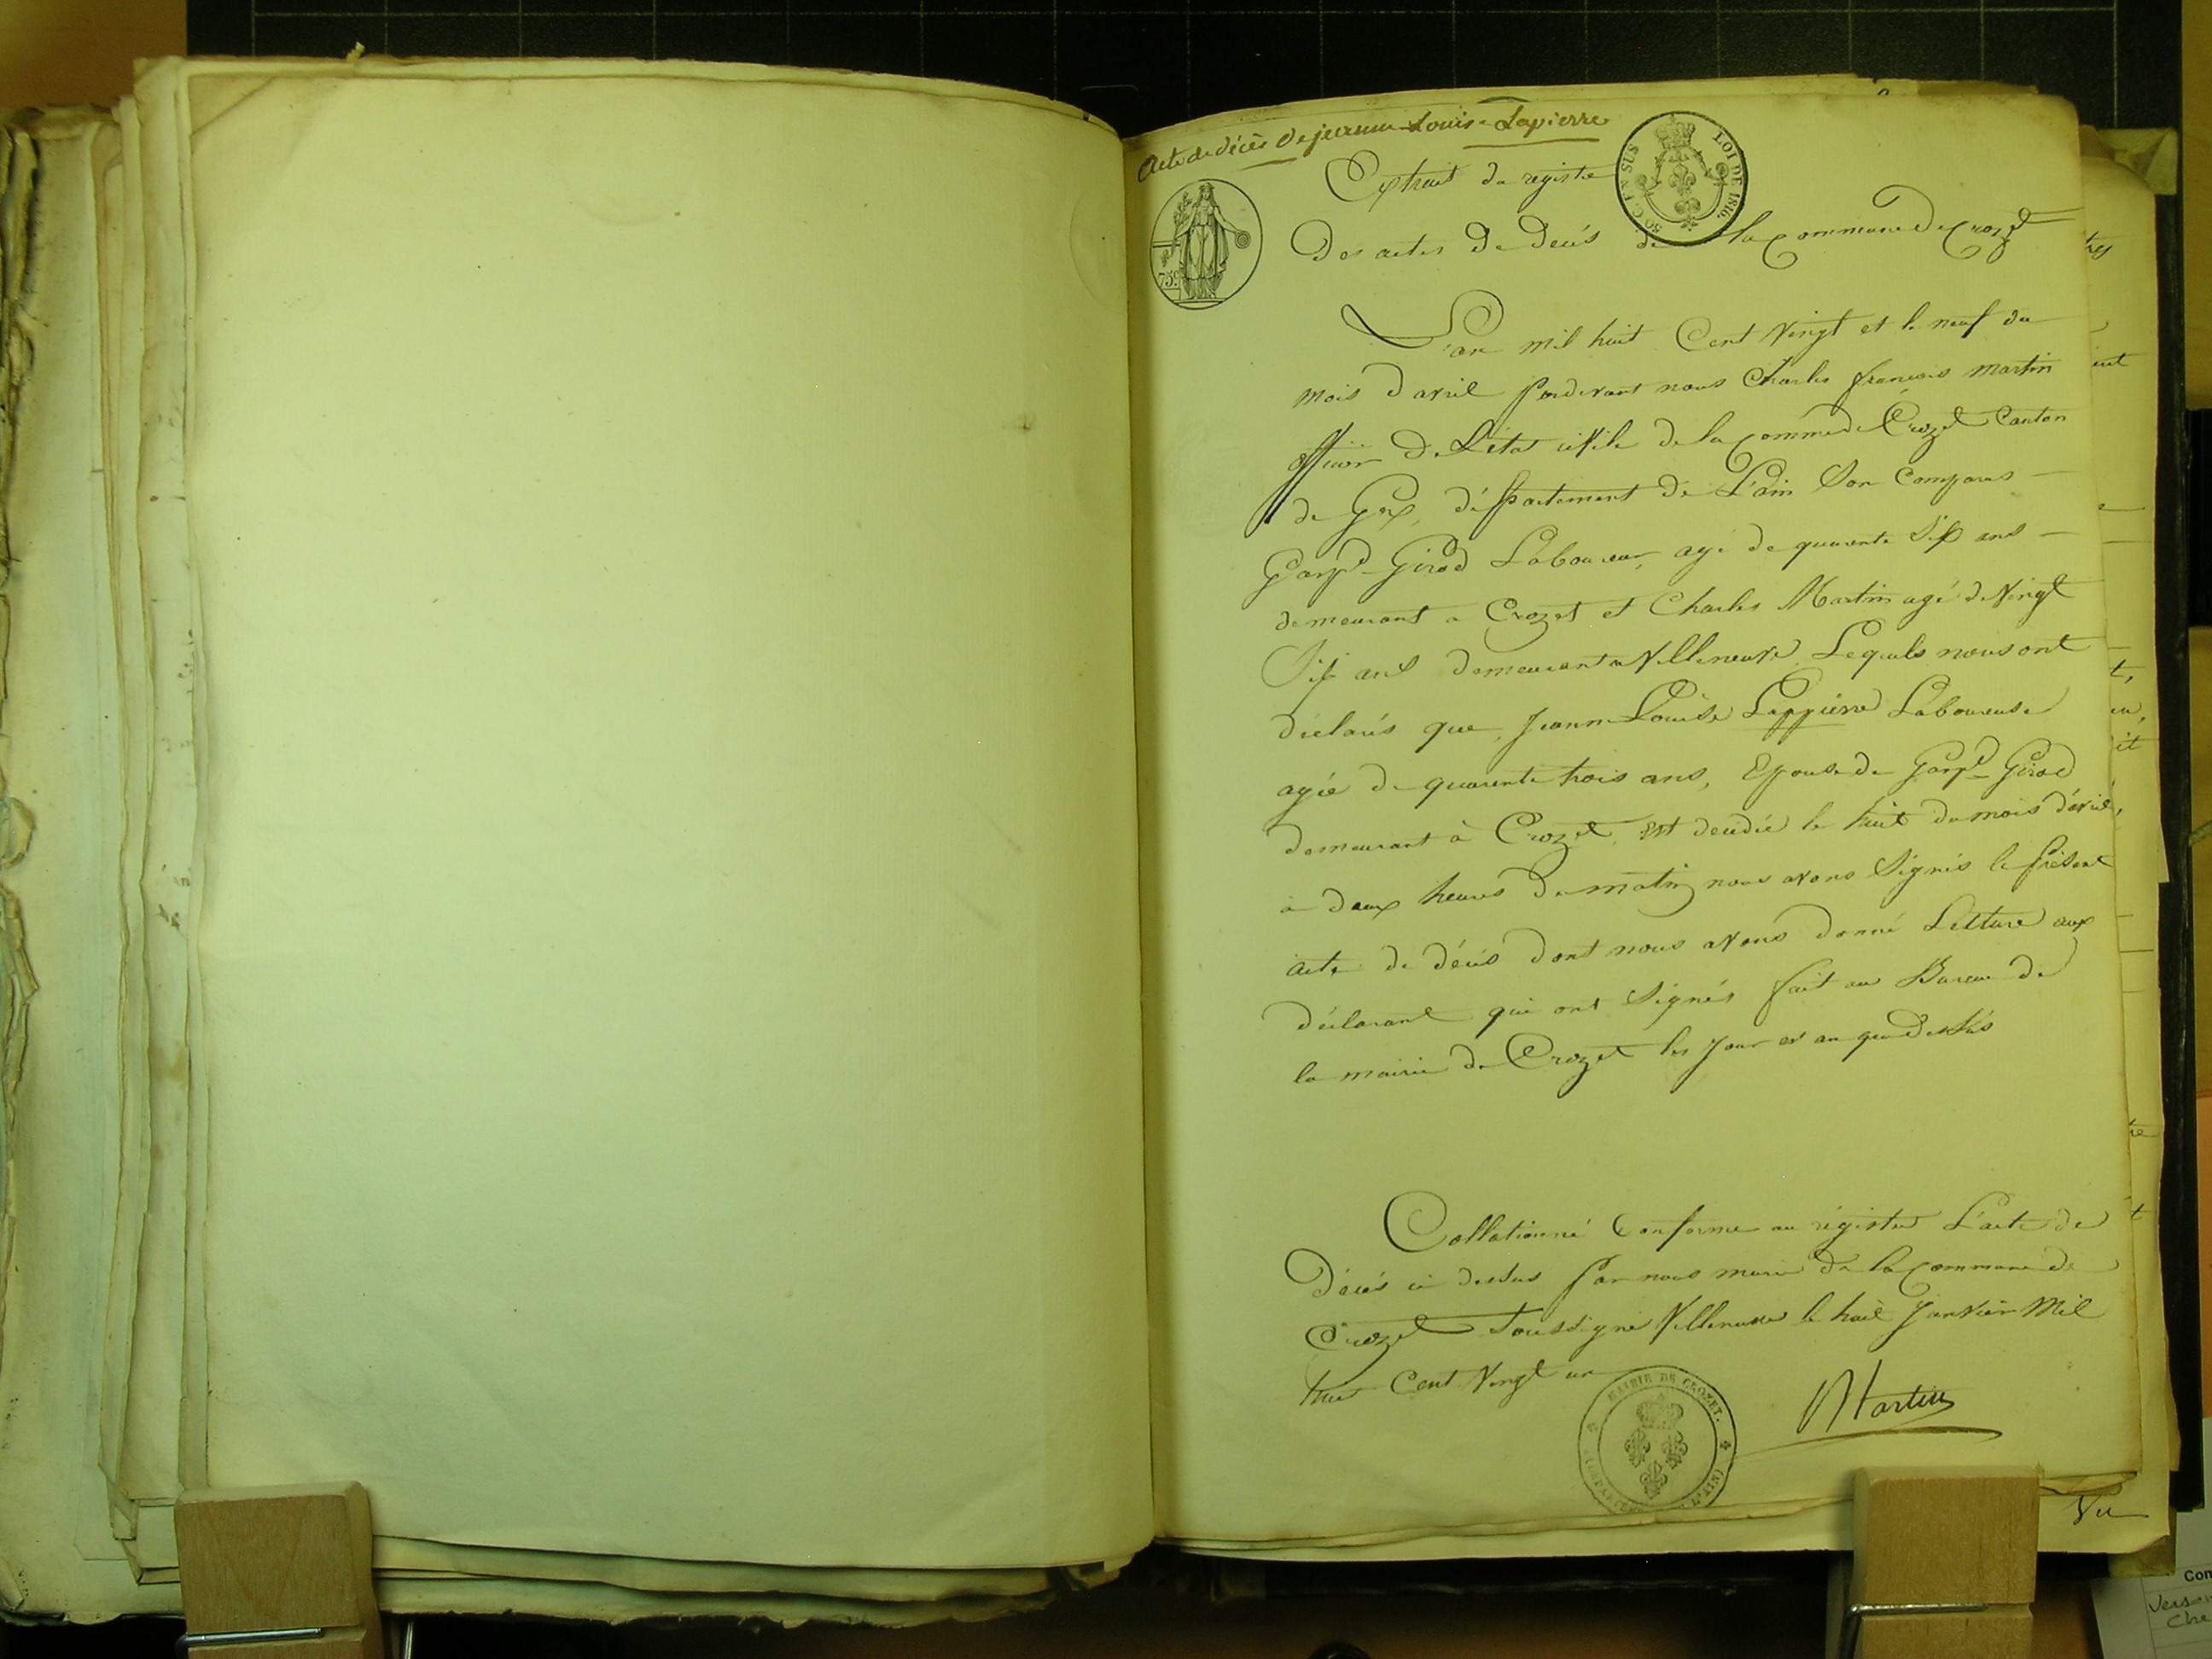 Acte de décès de jeanne Louise Lapierre
Extrait du registre
50 C. EN SUS
LOI DE 1816.
Des actes De Decés de la Commune De Crozet
75c
L'an mil huit Cent Vingt et le neuf du
mois d'avril pardevant nous Charles françois martin
officier De L'état civile De la comme de Crozet Canton
de Gex, département De L'ain Son Comparus
Gasp'd Girod Laboureur, agé de quarente Six ans
demeurant a Crozet et Charles Martin agé de Vingt
Six ans demeurant a Villeneuve Lequels nous ont
déclarés que, Jeanne Louise Lappierre Laboureuse
agée de quarente trois ans, Epouse de Gasp'd Girod
demeurant à Crozet, est decedée le huit du mois d'avril,
à deux heures Du matin nous avons Signés le présent
acte de décés dont nous avons donné Letture aux
déclarant qui ont Signés fait au Bureau de
la mairie de Crozet les Jour et an que Dessus
Collationné Conforme au régistre L'acte de
Décés ci dessus par nous maire de la Commune de
Crozet Soussigné Villeneuve le huit Janvier Mil
huit Cent Vingt un
MAIRIE DE CROZET.
L'AIN
Martin
Vu